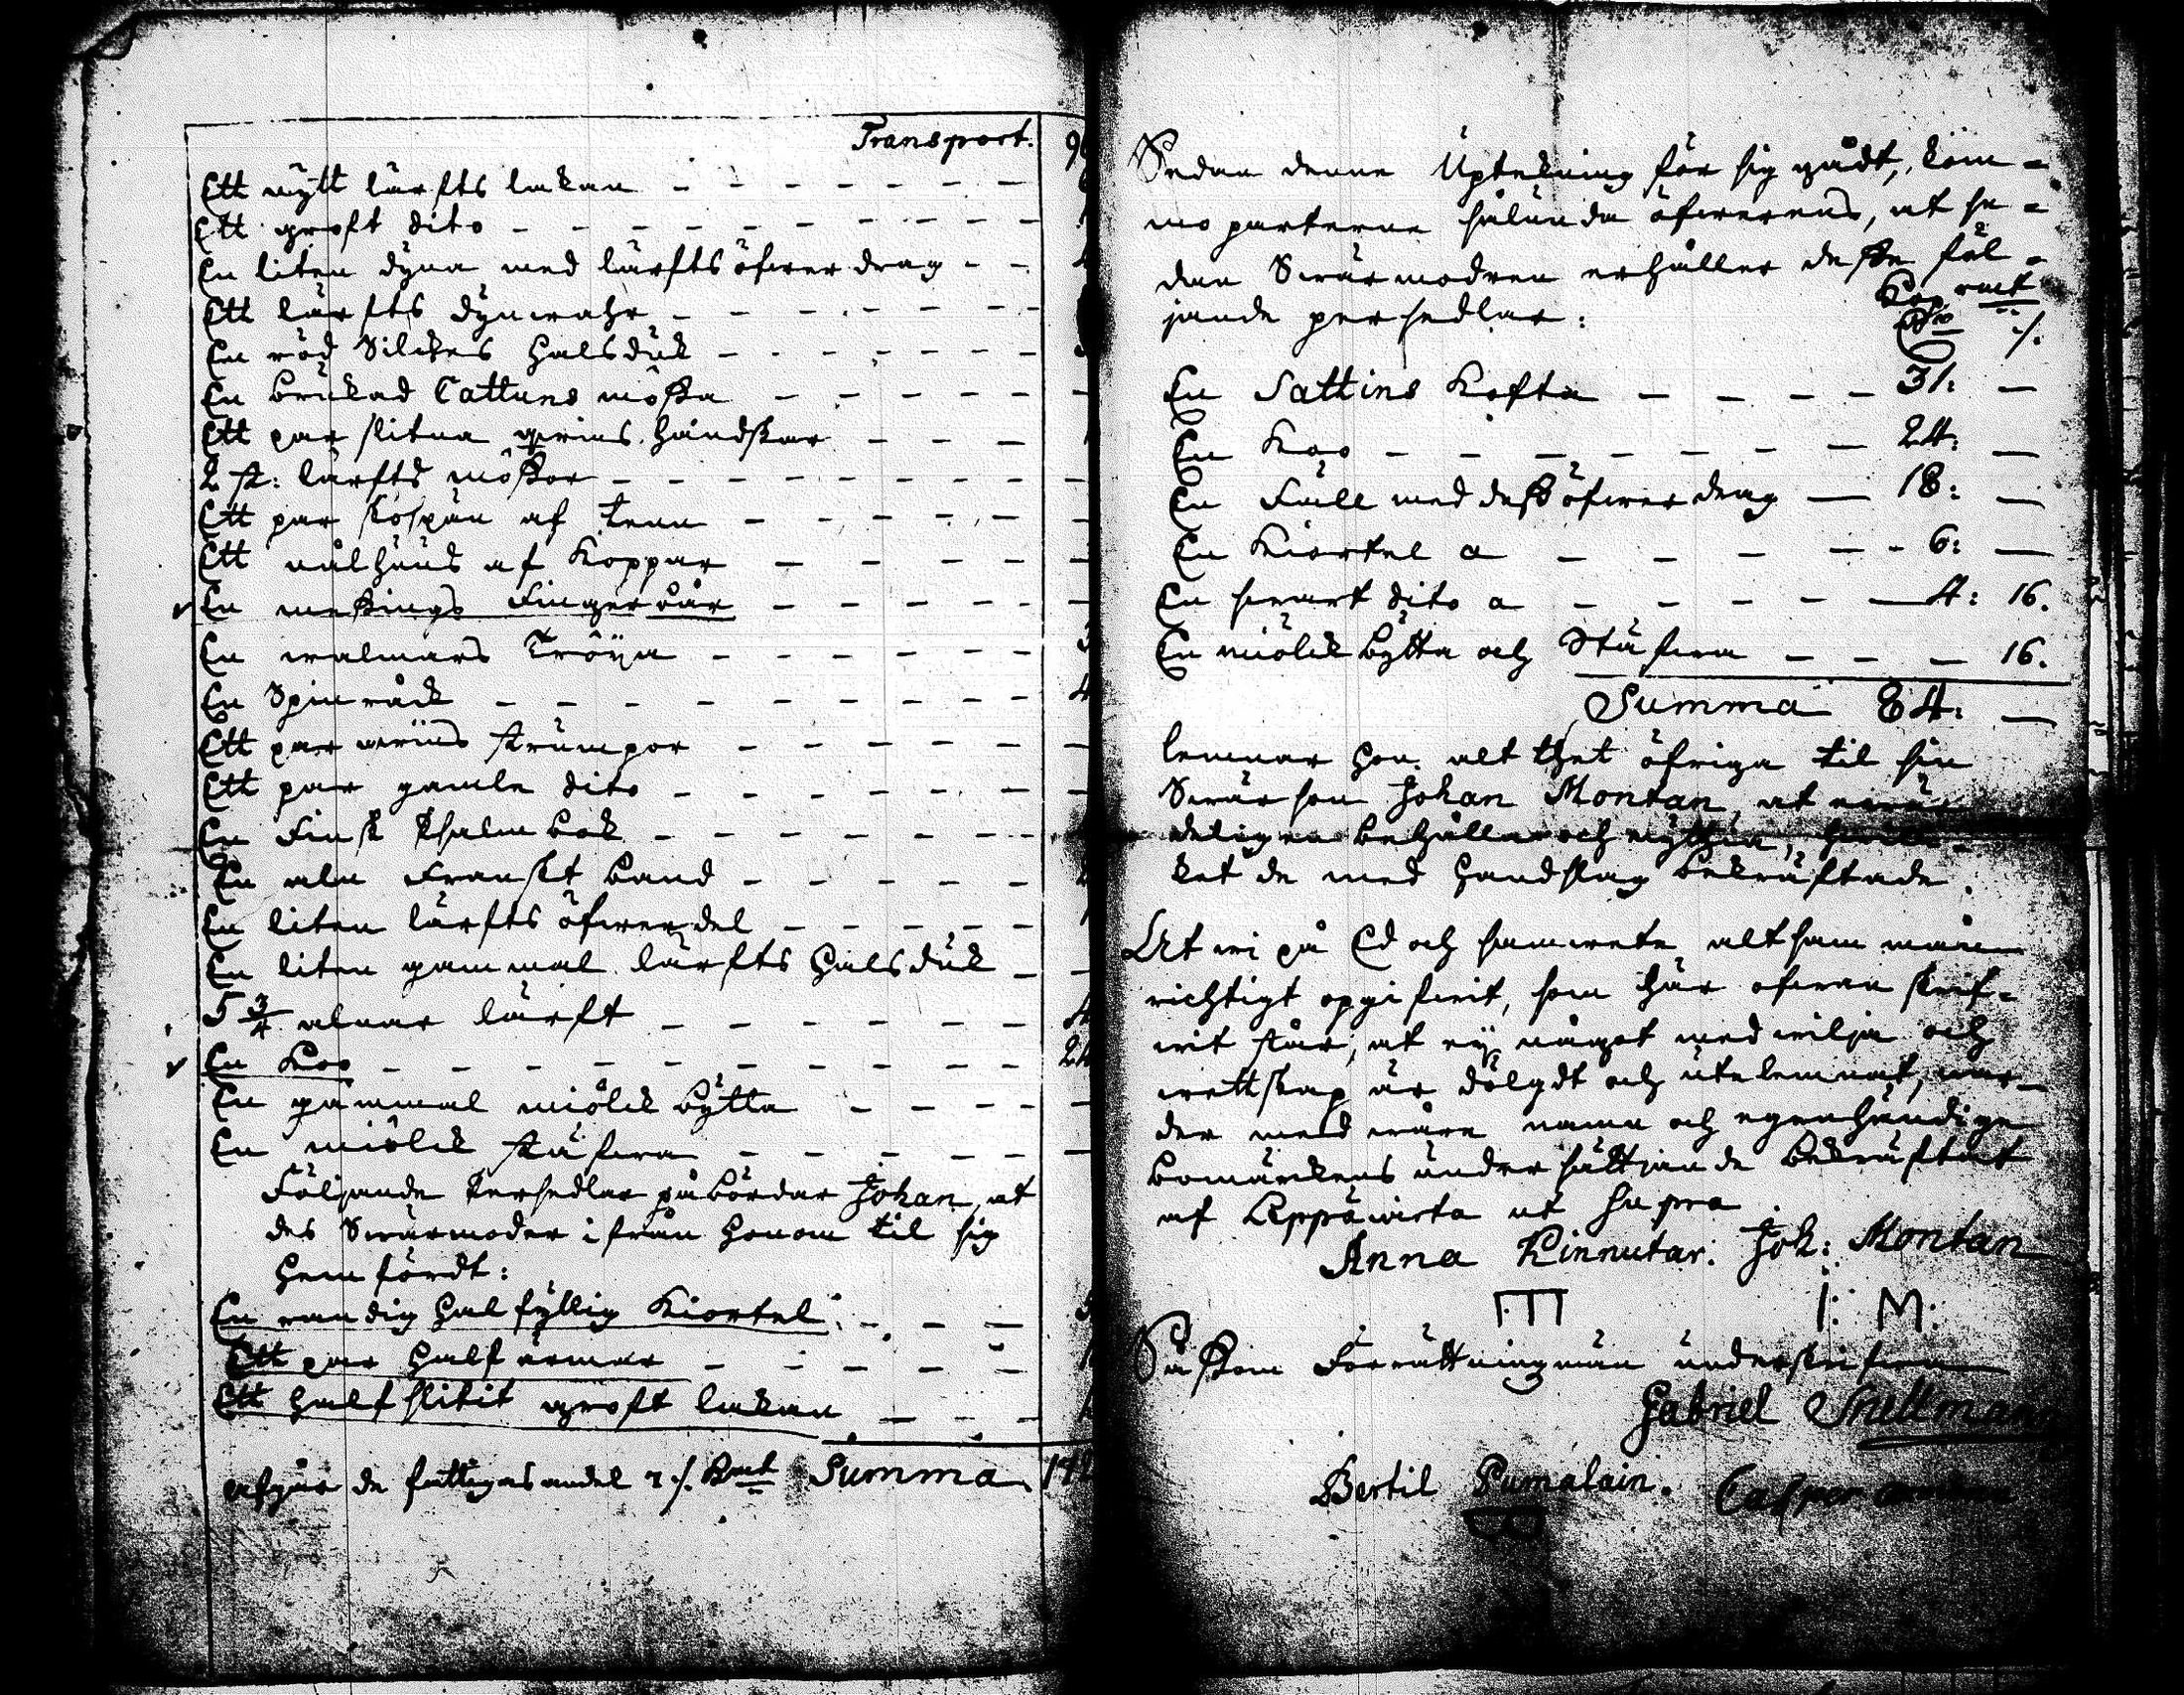 Transport. 9
Ett nytt lärfts lakan - - - - - - -
Ett groft dito - - - - - - - - -
En liten dyna med lärfts öfwerdrag - -
Ett lärfts dynwahr - - - - - - -
En röd Silckes Halsduk - - - - - - -
En brukad Cattuns mössa - - - - -
Ett par slitna handskar - - -
2 st: lärfts mössor - - - - - - - -
Ett par skospän af tenn - - - - -
Ett nålhuus af Koppar - - - - -
En messings Fingerbår - - - - -
En walmars Tröya - - - - - -
En Spinråck - - - - - - - - 4
Ett par strumpor - - - - -
Ett par gamle dito - - - - - -
En Finsk Psalmbok - - - - - -
En aln Franskt band - - - - -
En liten lärfts öfwerdel - - - - -
En liten gammal lärfts Halsduk -
5 3/4 alnar lärft - - - - - - 4
En Koo - - - - - - - - - 24
En gammal miölck bytta - - - -
En miölck stäfwa - - - - - -
Följande Persedlar påbördar Johan, at
des Swärmoder ifrån honom til sig
hemfördt:
En randig halfyllig Kiortel - - -
Ett par halfärmar - - - - -
Ett half slitit groft lakan - - -
afgår de fattigas andel Summa
Sedan denne Uptekning för sig gådt, kom-
mo parterne sålunda öfwerens, at se-
dan Swärmodren erhåller desse föl-
jande persedlar:
En Sattins Kofta - - - - 31: —
En Koo - - - - - - - 24: —
En Fäll med dess öfwerdrag — 18: —
En Kiortel a - - - - - 6: —
En swart dito a - - - - - 4: 16.
En miölck bytta och Stäfwa - - - 16.
Summa 84: —
lemnar hon alt thet öfriga til sin
Swärson Johan Montan, at
deligen behålla och nyttia, hwil-
ket de med handslag bekräftade.
At wi på Ed och samwete altsammans
richtigt oppgifwit, som här ofwan skrif-
wit står, at ey något med wilja och
wettskap är dölgdt och utelemnat, war-
der med wåra namn och egenhändige
bomärckens undersättjande bekräftat
af Leppäwirta ut supra.
Anna Kinnutar. Joh: Montan
I: M:
Såssom Förrättningmän underskrifwa
Gabriel Snellman
Bertil Pumalain. Casper